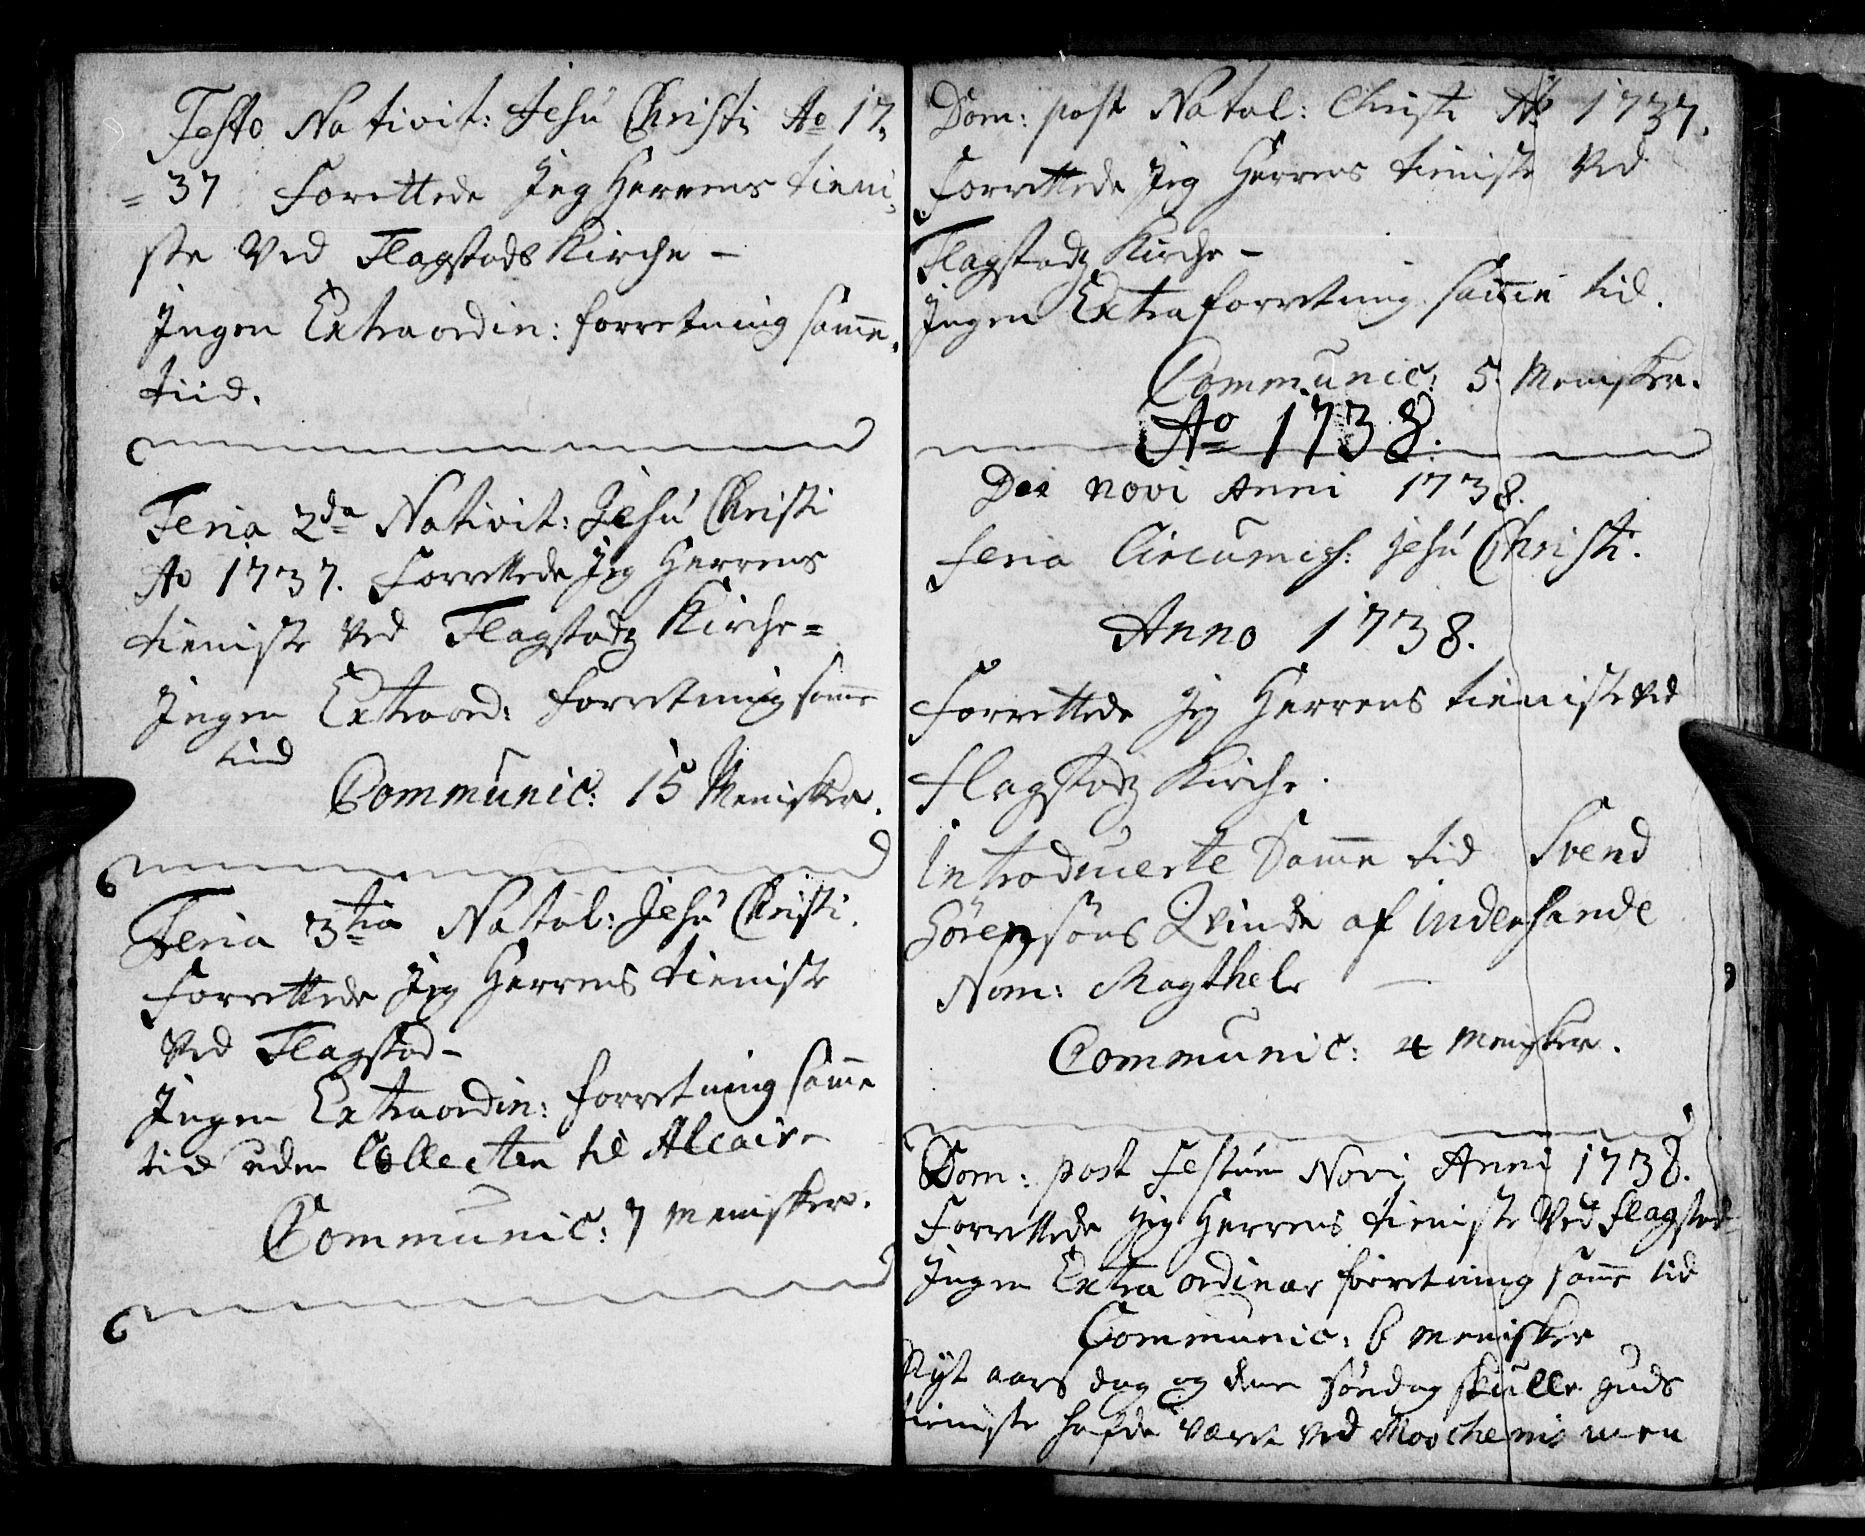 Festo Nativit: Jesu Christi Ao 17,
= 37 Forettede Jeg Herrens tieni,
ste Ved Flagstads Kirche –
Ingen Extraordin: forretning samme
tiid.
Feria 2da Nativit: Jesu Christi
Ao 1737. Forrettede Jeg Herrens
tieniste ved Flagstadz Kirche =
Ingen Extraord: Forretning samme
tiid
Communic: 15 Menisker.
Feria 3tia Natal: Jesu Christi.
Forrettede Jeg Herrens tieniste
Ved Flagstad –
Ingen Extraordin: forretning samme
tid uden Collecten til Alcair –
Communic: 7 Menisker.
Dom: post Natal: Christi Ao 1737.
Forrettede Jeg Herrens tieniste Ved
Flagstadz Kirche –
Ingen Extra forretning samme tid.
Communic: 5 Menisker.
Ao 1738.
Dei novi Anni 1738.
Feria Circumcis: Jesu Christi.
Anno 1738.
Forrettede Jeg Herrens tieniste ved
Flagstadz Kirche.
Introducerte Samme tid Svend
Sörensöns Qvinde af Inderhande
Nom: Magthele –
Communic: 4 Menisker.
Dom: post Festum Novi Anni 1738.
Forrettede Jeg Herrens tieniste Ved Flagstad –
Ingen Extra ordinar forretning samme tid
Communic: 6 Menisker
Nyt aars dag og denne söndag skulle guds
tieniste hafde været ved men